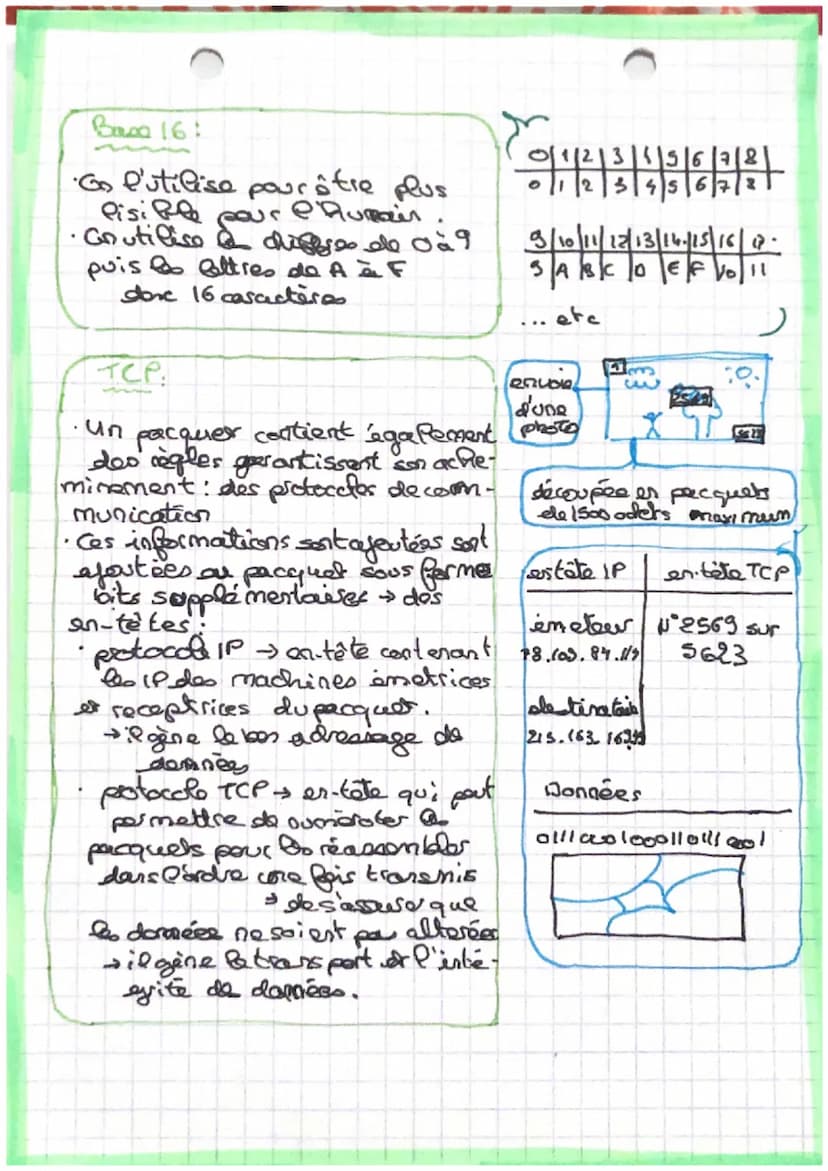 Base 16 :
· On l'utilise pour être plus
lisible pour l'Humain.
· On utilise le chiffres de 0 à 9
puis les lettres de A à F
donc 16 caractères
0 | 1 | 2 | 3 | 4 | 5 | 6 | 7 | 8 |
0 | 1 | 2 | 3 | 4 | 5 | 6 | 7 | 8 |
9 | 10 | 11 | 12 | 13 | 14 | 15 | 16 | 17
9 | A | B | C | D | E | F | 10 | 11
... etc
TCP:
· Un pacquer contient également
des règles garantissent son ache-
minement : des protocoles de com-
munication
· Ces informations sont ajoutées sont
ajoutées au pacquet sous forme
bits supplémentaires → des
en-têtes :
· protocole IP → en-tête contenant
les IP des machines émetrices
et receptrices du pacquet.
→ il gène le bon adressage de
données
· protocole TCP → en-tête qui peut
permettre de numéroter le
pacquets pour les réassembler
dans l'ordre une fois transmis
→ de s'assure que
les données ne soient pas alterées
→ il gène le transport et l'inté-
grité de données.
envoie
d'une
photo
1
2569
5623
découpée en pacquets
de 1500 octets maximum
entête IP | en-tête TCP
émeteur | N°2569 sur
5623
destinataire
Données